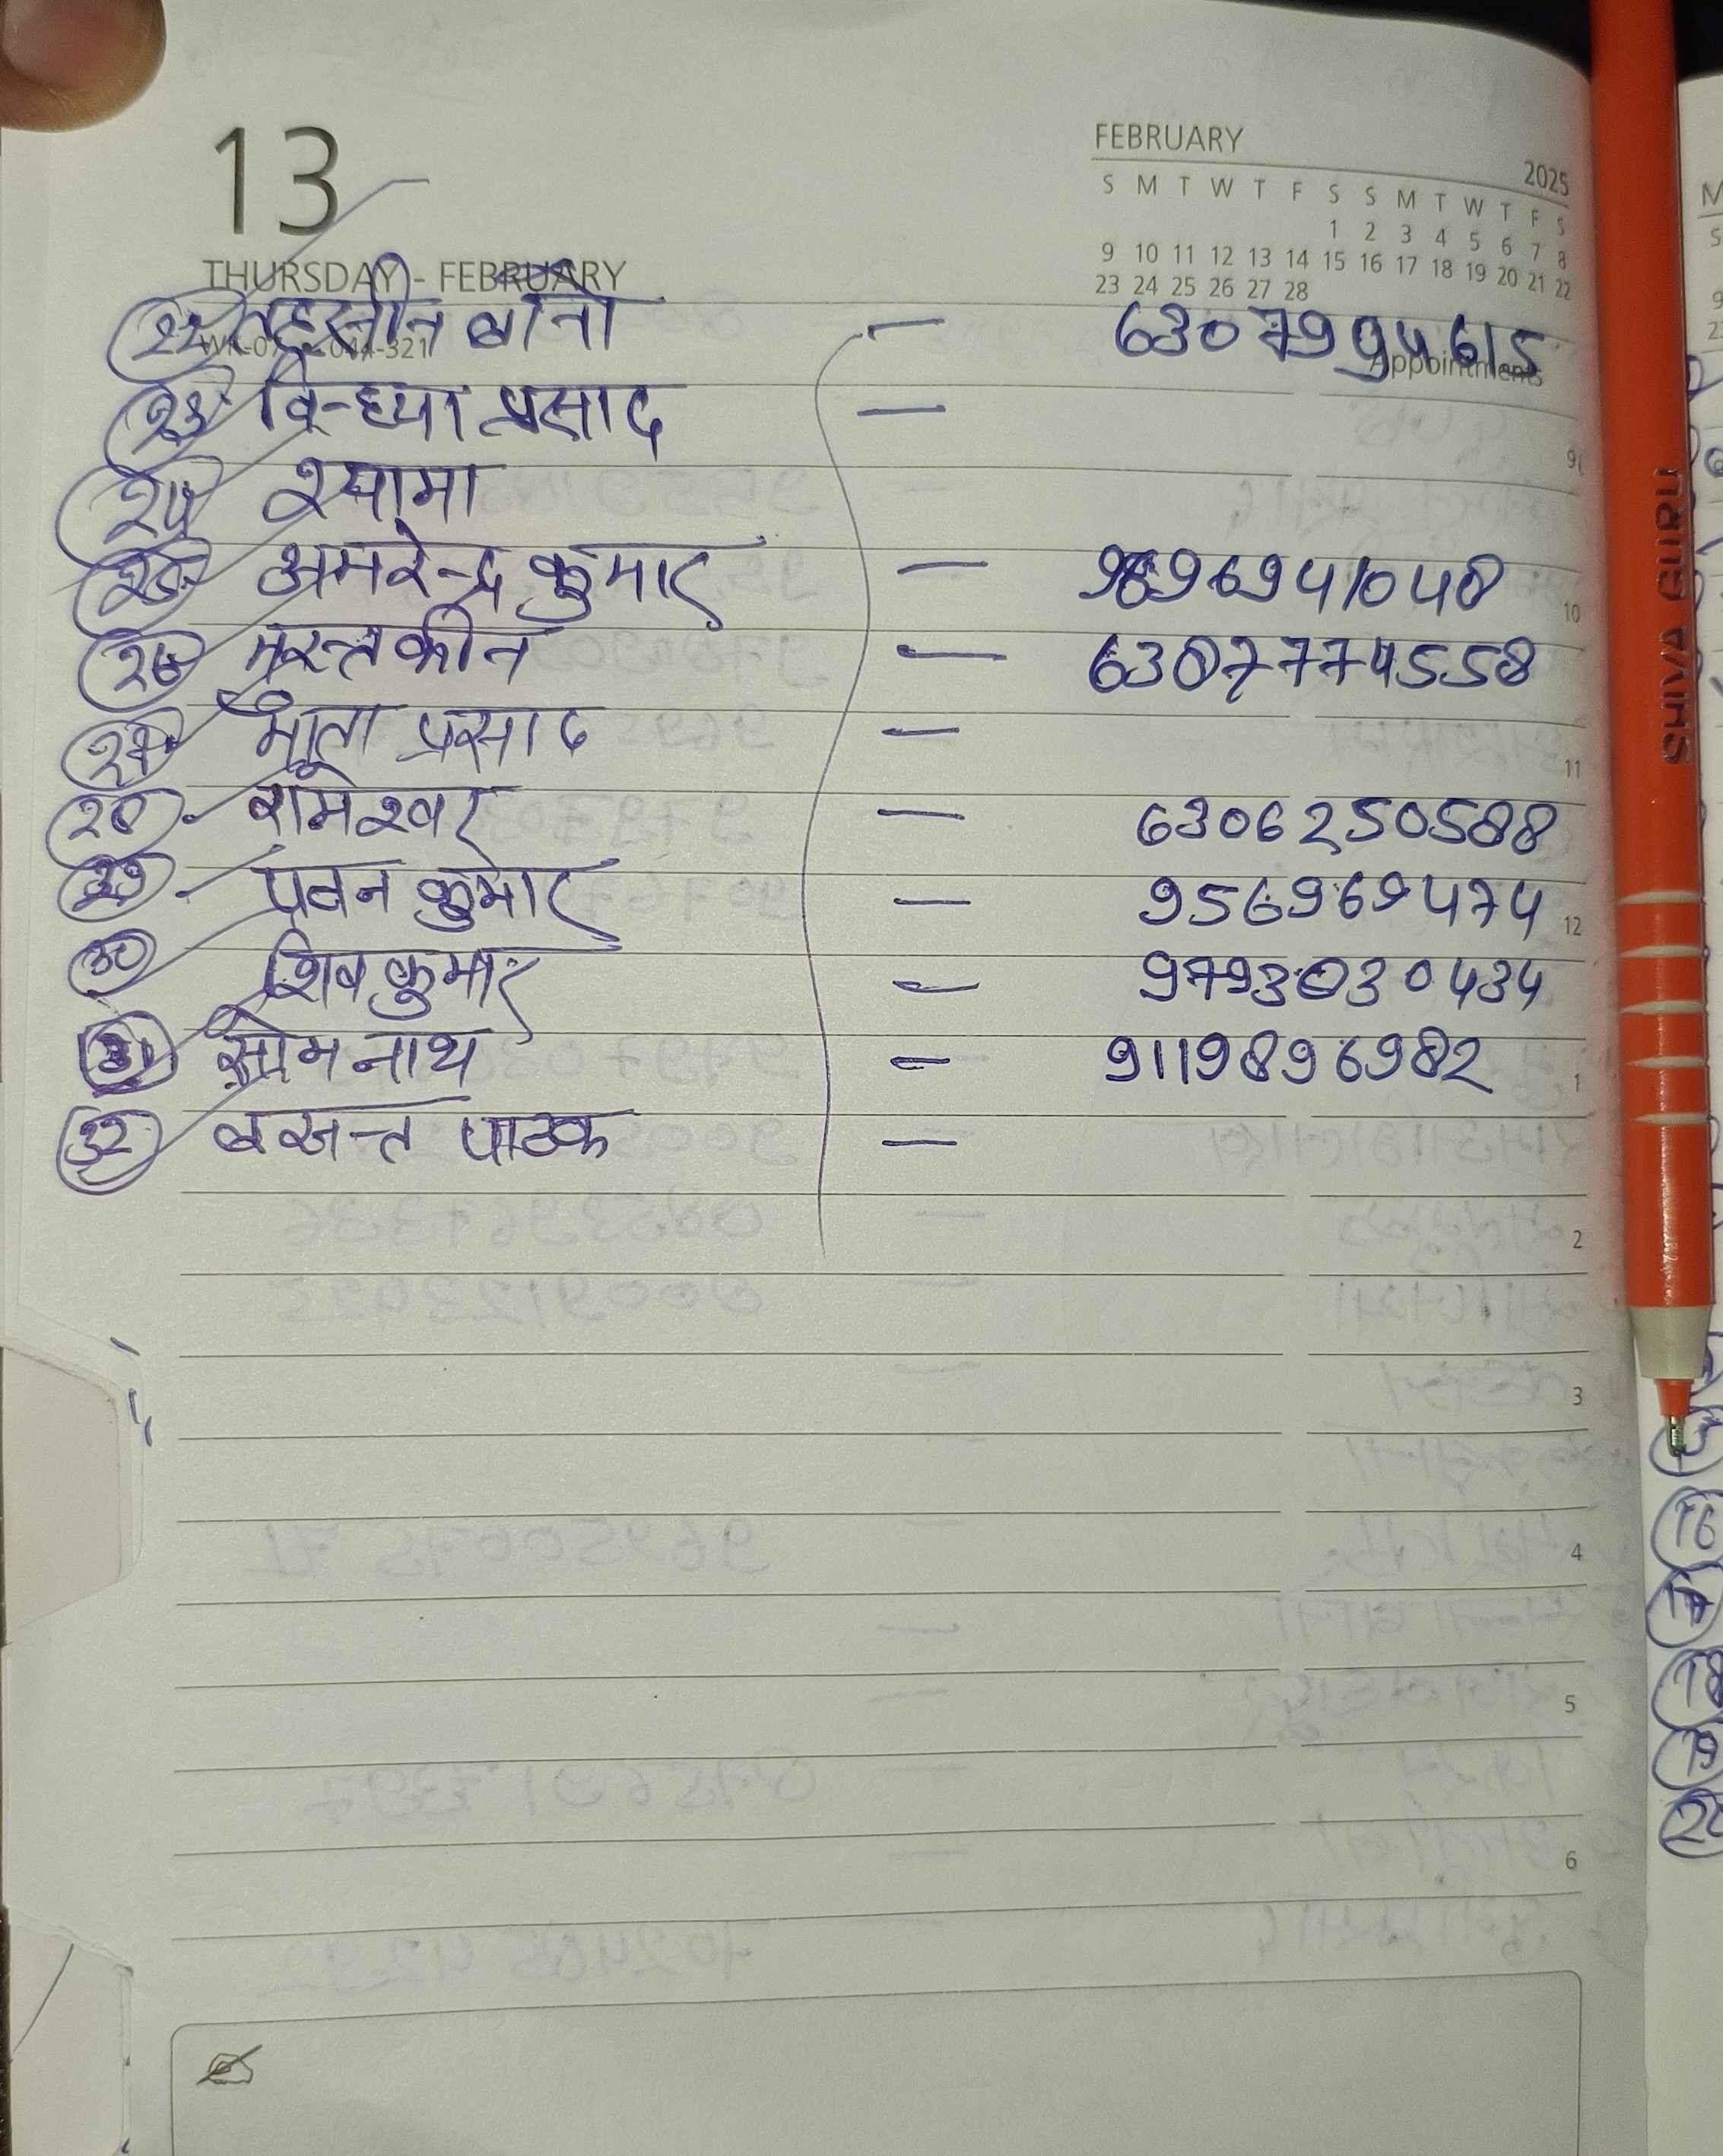 13
THURSDAY - FEBRUARY
FEBRUARY 2025
S M T W T F S S M T W T F S
1 2 3 4 5 6 7 8
9 10 11 12 13 14 15 16 17 18 19 20 21 22
23 24 25 26 27 28
Appointments
तहसीन बानो — 6307994615
विन्ध्या प्रसाद —
श्यामा
अमरेन्द्र कुमार — 9696941048
मस्तकीन — 6307774558
माता प्रसाद —
२८ रामेश्वर — 6306250588
२९ पवन कुमार — 956969474
३० शिव कुमार — 9793030434
३१ सोमनाथ — 9119896982
३२ बसन्त पाठक —
9
10
11
12
1
2
3
4
5
6
SHIVA GURU
16
17
18
19